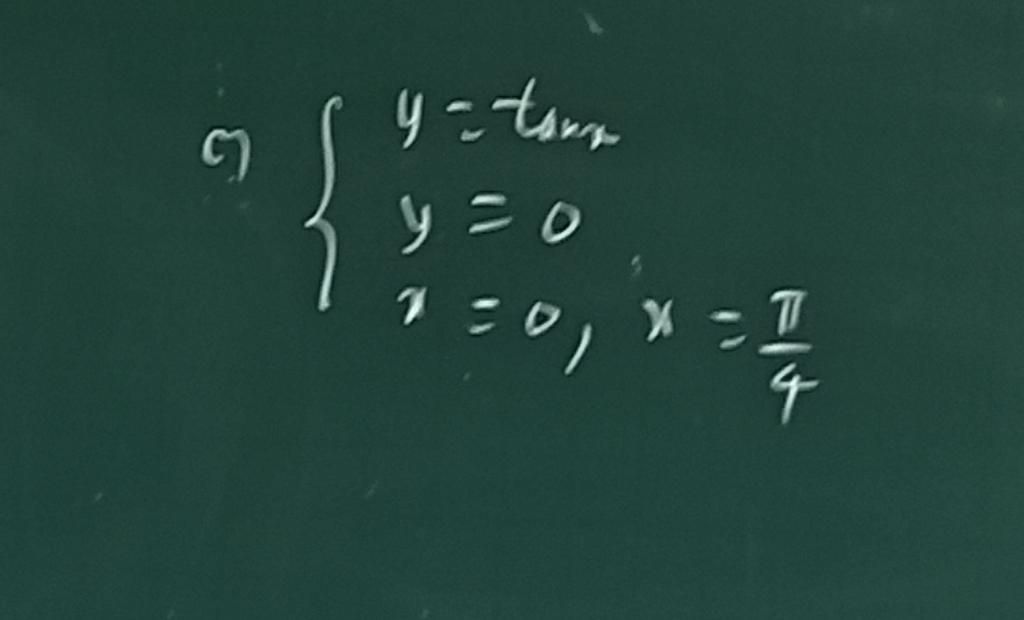 c) { y = tanx
y = 0
x = 0, x = π/4